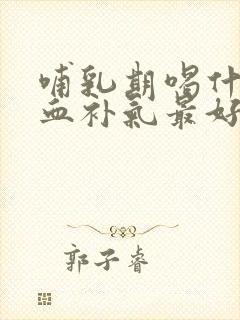 哺乳期喝什
血补气最好
郭子睿